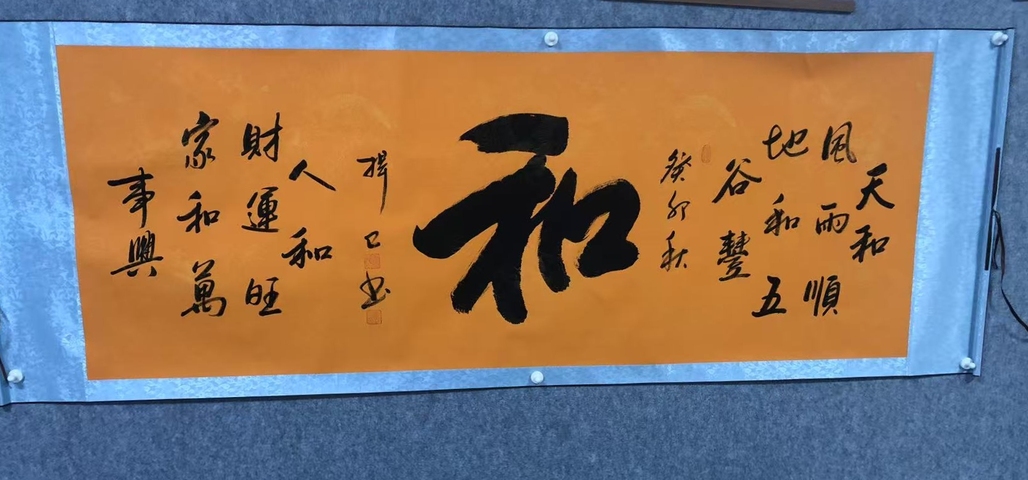 天和
風雨順
地和五
谷豐
癸卯秋
和
书
人和
財運旺
家和萬
事興